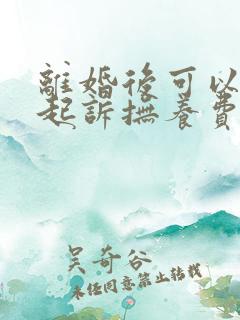 離婚後可以
起訴撫養費
吳奇谷
未經同意禁止轉載